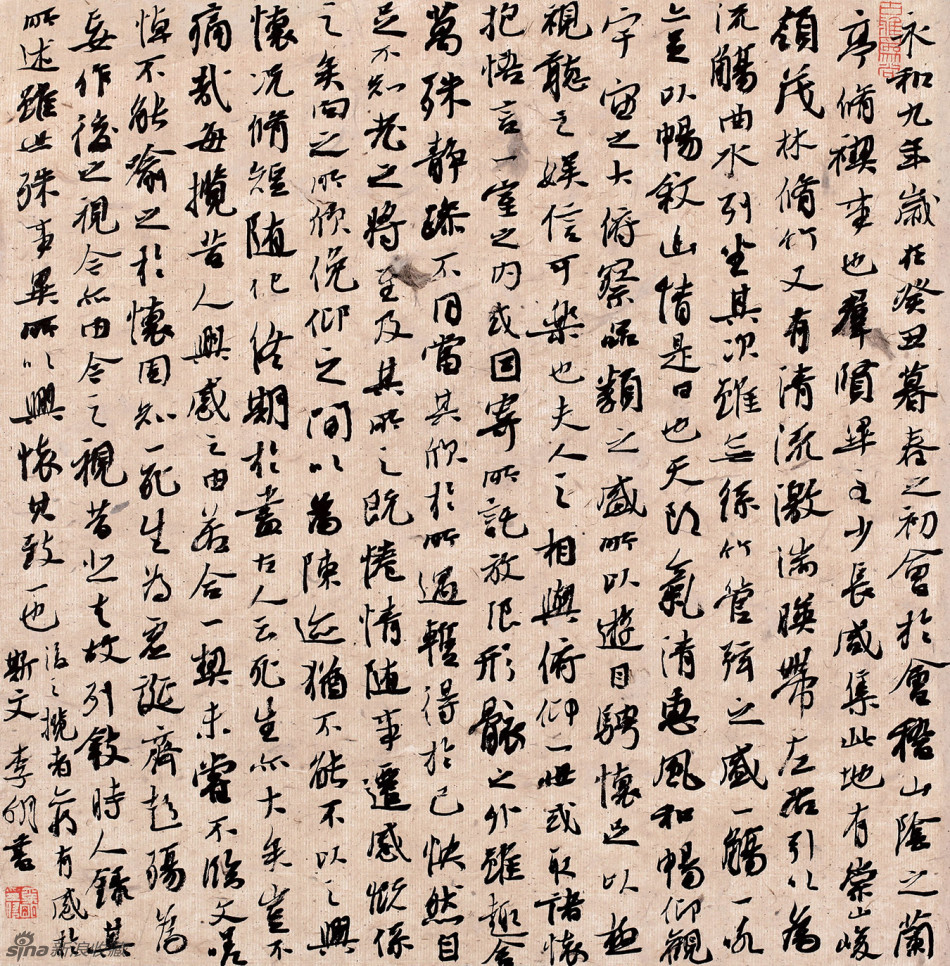 永和九年歲在癸丑暮春之初會於會稽山陰之蘭
亭脩禊事也羣賢畢至少長咸集此地有崇山峻
領茂林脩竹又有清流激湍暎帶左右引以為
流觴曲水列坐其次雖無絲竹管弦之盛一觴一詠
亦足以暢敘幽情是日也天朗氣清惠風和暢仰觀
宇宙之大俯察品類之盛所以遊目騁懷足以極
視聽之娛信可樂也夫人之相與俯仰一世或取諸懷
抱悟言一室之內或因寄所託放浪形骸之外雖趣舍
萬殊靜躁不同當其欣於所遇暫得於己快然自
足不知老之將至及其所之既惓情隨事遷感慨係
之矣向之所欣俛仰之間以為陳迹猶不能不以之興
懷況脩短隨化終期於盡古人云死生亦大矣豈不
痛哉每攬昔人興感之由若合一契未嘗不臨文嗟
悼不能喻之於懷固知一死生為虛誕齊彭殤為
妄作後之視今亦由今之視昔悲夫故列敘時人錄其
所述雖世殊事異所以興懷其致一也
後之攬者將有感於
斯文 李明書
sina新浪收藏